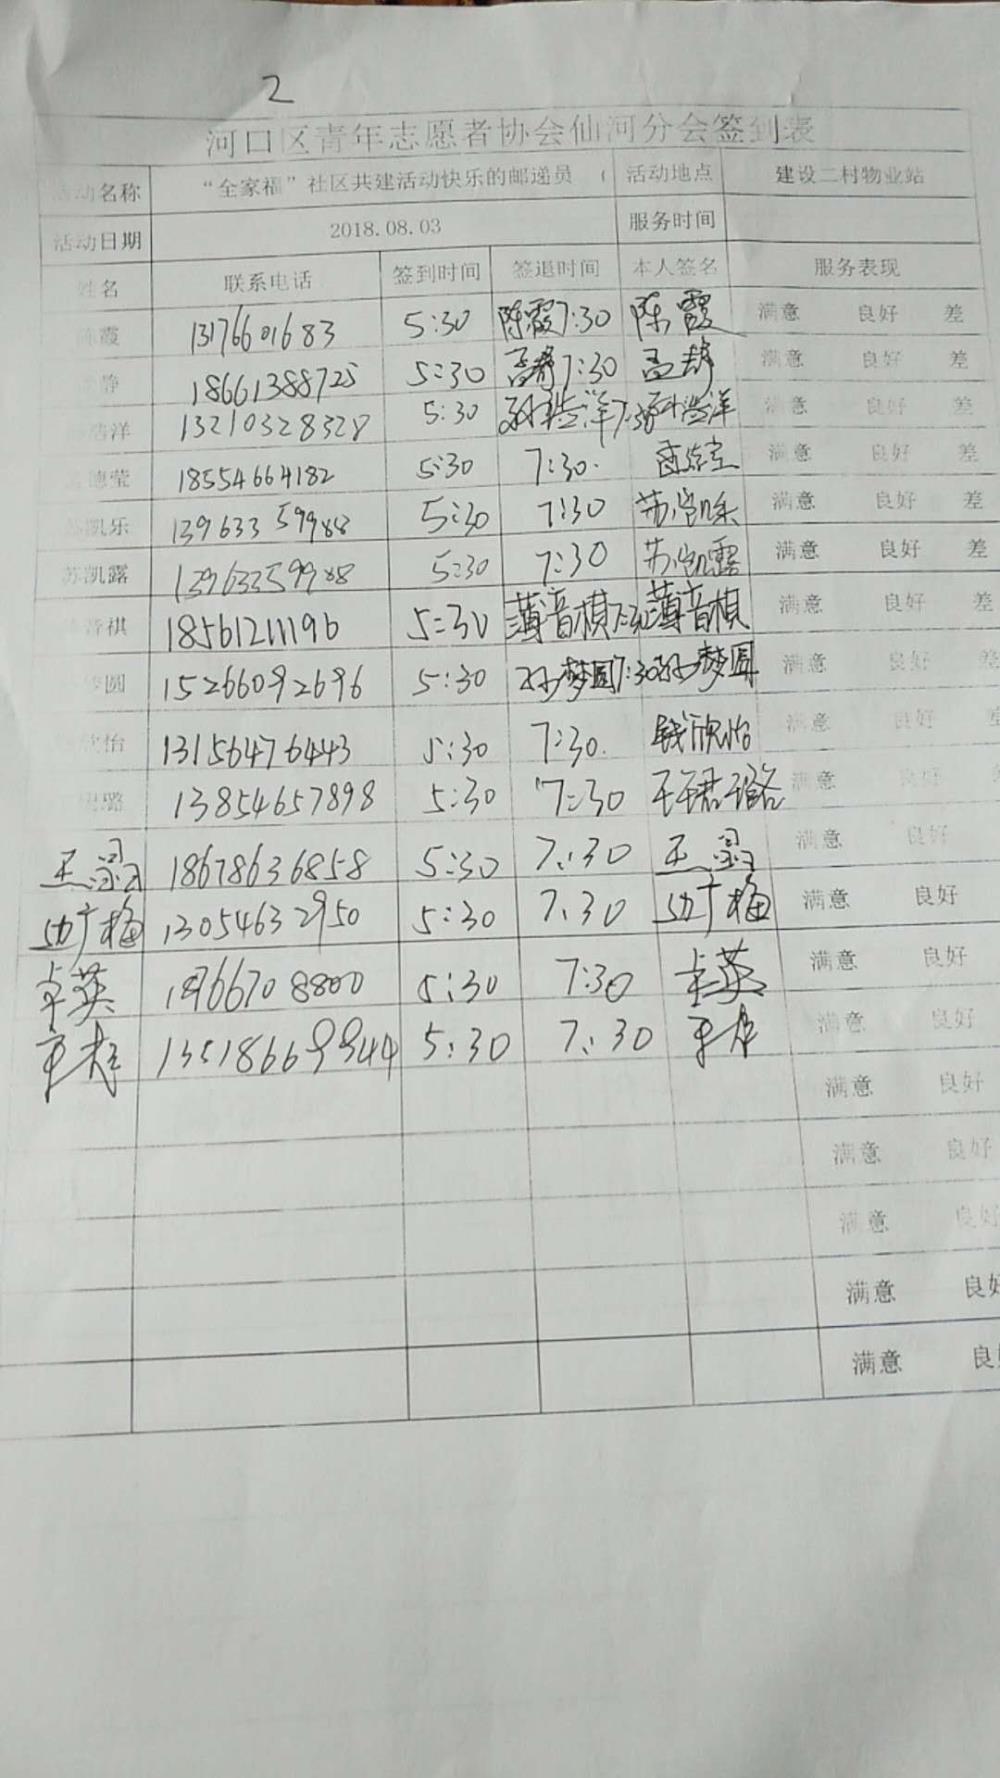 2
河口区青年志愿者协会仙河分会签到表
活动名称 “全家福”社区共建活动快乐的邮递员 （ 活动地点 建设二村物业站
活动日期 2018.08.03 服务时间
姓名 联系电话 签到时间 签退时间 本人签名 服务表现
陈霞 13176601683 5:30 陈霞7:30 陈霞 满意 良好 差
静 18661388725 5:30 7:30 满意 良好 差
浩洋 13210328328 5:30 孙浩洋7:30 孙浩洋 满意 良好 差
德莹 18554664182 5:30 7:30. 满意 良好 差
苏凯乐 13963359988 5:30 7:30 苏凯乐 满意 良好 差
苏凯露 13963359988 5:30 7:30 苏凯露 满意 良好 差
音祺 18561211196 5:30 薄音棋7:30 薄音棋 满意 良好 差
圆 15266092696 5:30 孙梦圆7:30 孙梦圆 满意 良好 差
欣怡 13156476443 5:30 7:30. 钱欣怡 满意 良好 差
璐 13854657898 5:30 7:30 满意 良好
18678636858 5:30 7:30 满意 良好
13054632950 5:30 7:30 满意 良好
卓英 18766708800 5:30 7:30 卓英 满意 良好
13518669944 5:30 7:30 满意 良好
满意 良好
满意 良好
满意 良好
满意 良好
满意 良